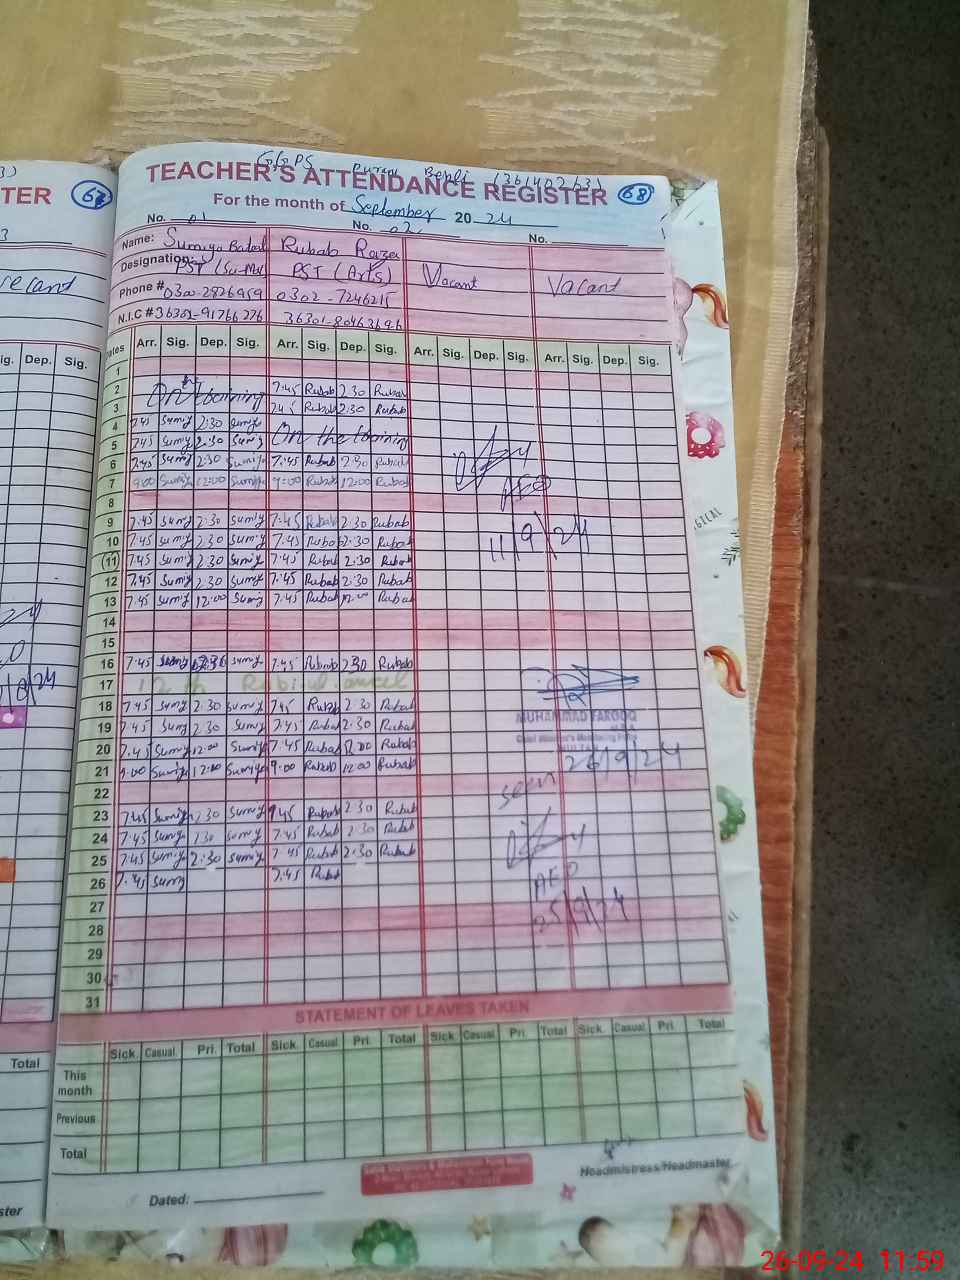 TER 67
G.G.PS
TEACHER'S ATTENDANCE REGISTER 68
For the month of September 20 24
No. 01 No. 02 No.
Name: Sumiya Rubab
Designation: PST PST (Arts) Vacant Vacant
Phone # 0302-7246215
N.I.C #
Dates Arr. Sig. Dep. Sig. Arr. Sig. Dep. Sig. Arr. Sig. Dep. Sig. Arr. Sig. Dep. Sig.
1
2 On training 7:45 Rubab 2:30 Rubab
3 7:45 Rubab 2:30 Rubab
4 7:45 Sumiy 2:30 Sumiy On the training
5 7:45 Sumiy 2:30 Sumiy
6 7:45 Sumiy 2:30 Sumiya 7:45 Rubab 2:30 Rubab
7 9:00 Sumiy 12:00 Sumiya 9:00 Rubab 12:00 Rubab
AEO
8
9 7:45 Sumiy 2:30 Sumiy 7:45 Rubab 2:30 Rubab
10 7:45 Sumiy 2:30 Sumiy 7:45 Rubab 2:30 Rubab
11/9/24
11 7:45 Sumiy 2:30 Sumiy 7:45 Rubab 2:30 Rubab
12 7:45 Sumiy 2:30 Sumiy 7:45 Rubab 2:30 Rubab
13 7:45 Sumiy 12:00 Sumiy 7:45 Rubab 12:00 Rubab
14
15
16 7:45 Sumiy Sumiy 7:45 Rubab 2:30 Rubab
17 12th Rabi-ul-awal
18 7:45 Sumiy 2:30 Sumiy 7:45 Rubab 2:30 Rubab
MUHAMMAD FAROOQ
19 7:45 Sumiy 2:30 Sumiy 7:45 Rubab 2:30 Rubab
20 7:45 Sumiy 12:00 Sumiy 7:45 Rubab 12:00 Rubab
26/9/24
21 9:00 Sumiy 12:00 Sumiya 9:00 Rubab 12:00 Rubab
seen
22
23 7:45 Sumiy 2:30 Sumiy 7:45 Rubab 2:30 Rubab
24 7:45 Sumiy Sumiy 7:45 Rubab 2:30 Rubab
25 7:45 Sumiy 2:30 Sumiy 7:45 Rubab 2:30 Rubab
26 7:45 Sumiy 7:45 Rubab
AEO
27
25/9/24
28
29
30
31
STATEMENT OF LEAVES TAKEN
Sick. Casual. Pri. Total Sick. Casual Pri. Total Sick. Casual. Pri. Total Sick. Casual. Pri. Total
This month
Previous
Total
Headmistress/Headmaster
Dated:
ig. Dep. Sig.
Total
26-09-24 11:59